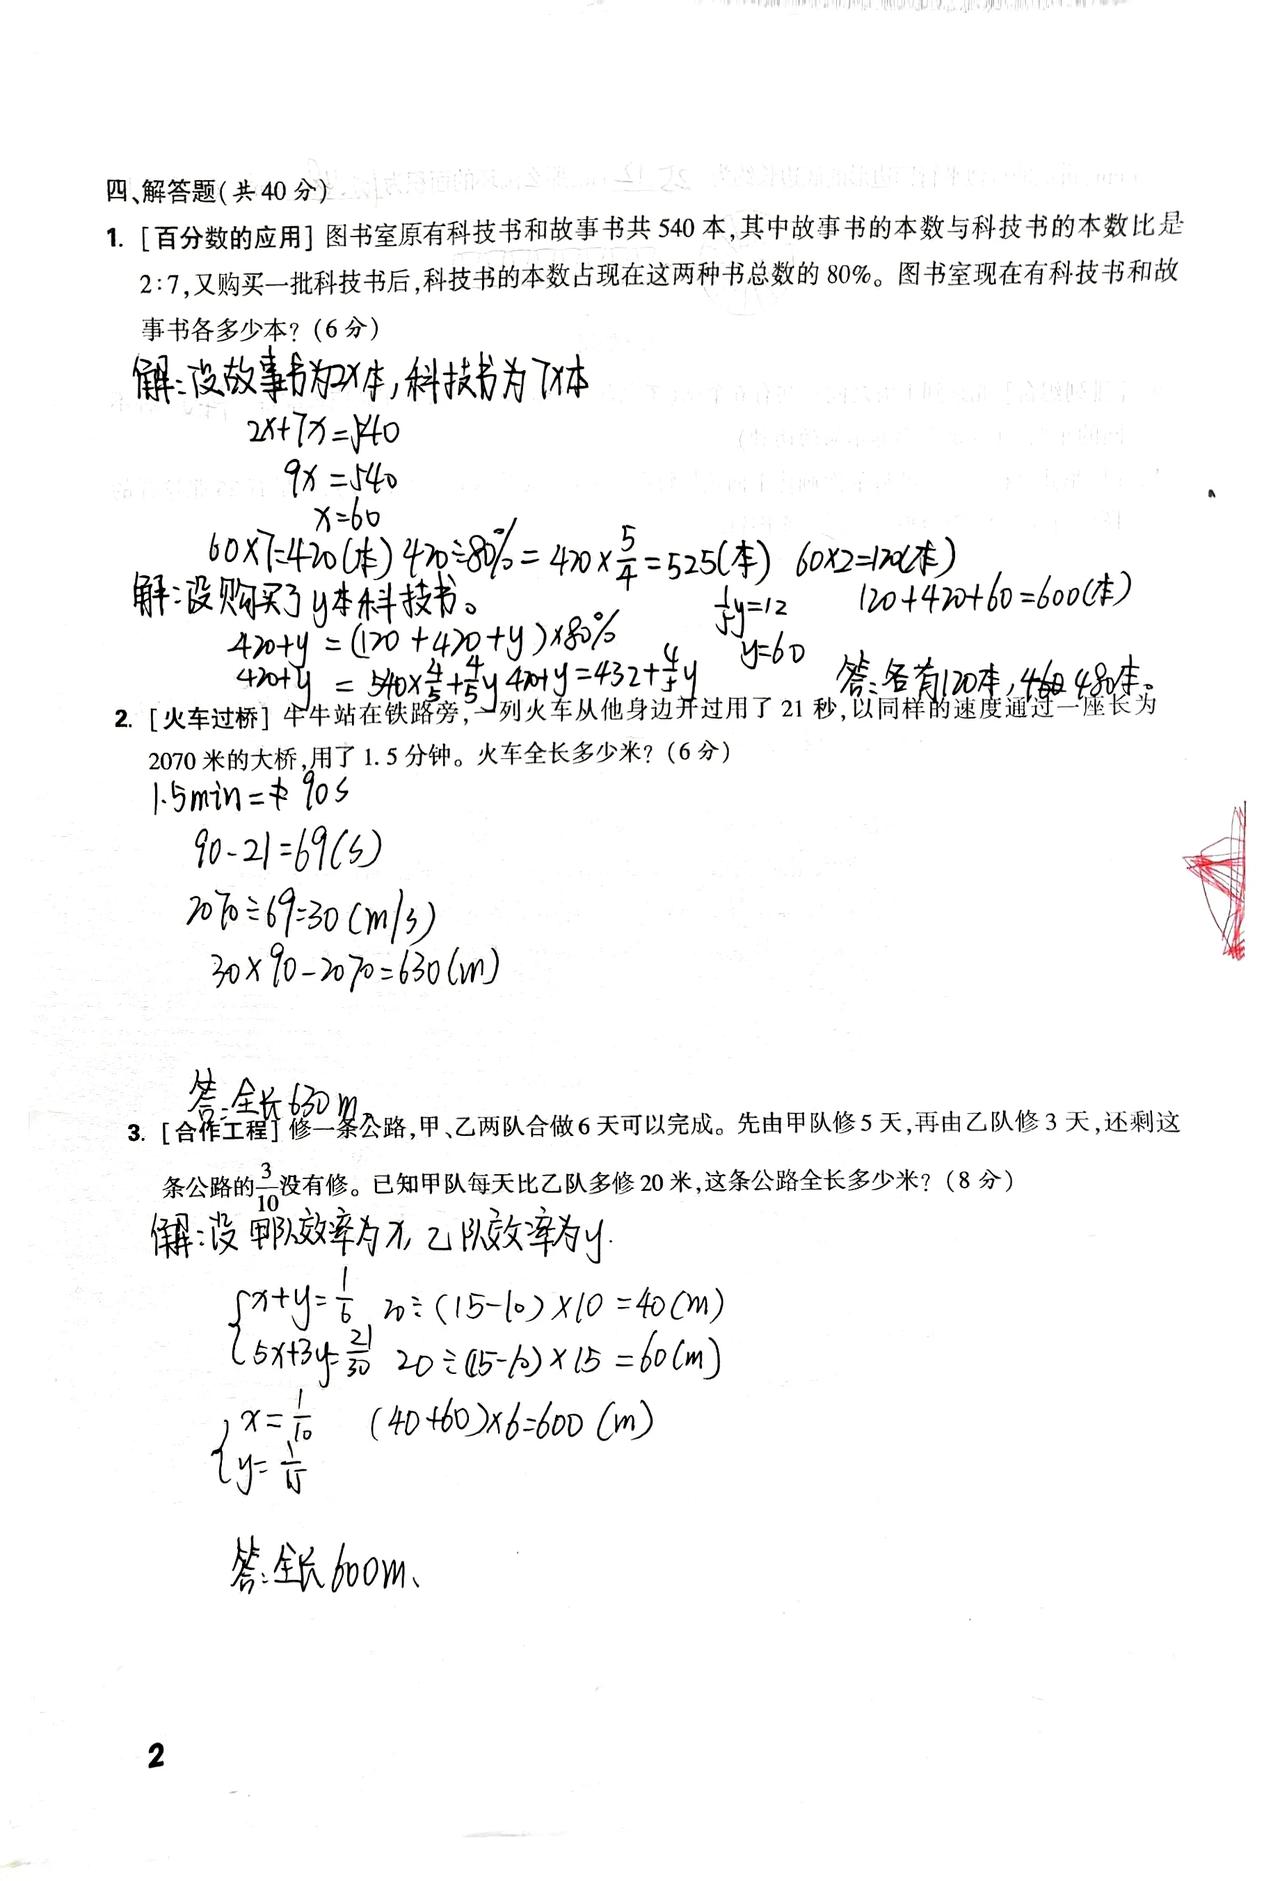 四、解答题(共40分)
1. [百分数的应用] 图书室原有科技书和故事书共 540 本,其中故事书的本数与科技书的本数比是
2:7,又购买一批科技书后,科技书的本数占现在这两种书总数的 80%。图书室现在有科技书和故
事书各多少本?(6分)
解:设故事书为2x本,科技书为7x本
2x+7x=540
9x=540
x=60
60×7=420(本) 420÷80%=420×5/4=525(本) 60×2=120(本)
解:设购买了y本科技书。 1/5y=12 120+420+60=600(本)
420+y=(120+420+y)×80% y=60
420+y=540×4/5+4/5y 420+y=432+4/5y 答:各有120本, 480本。
2. [火车过桥] 牛牛站在铁路旁,一列火车从他身边开过用了 21 秒,以同样的速度通过一座长为
2070 米的大桥,用了 1.5 分钟。火车全长多少米?(6分)
1.5min=90s
90-21=69(s)
2070÷69=30(m/s)
30×90-2070=630(m)
答:全长630m、
3. [合作工程] 修一条公路,甲、乙两队合做6天可以完成。先由甲队修5天,再由乙队修3天,还剩这
条公路的3/10没有修。已知甲队每天比乙队多修20米,这条公路全长多少米?(8分)
解:设甲队效率为x,乙队效率为y.
{x+y=1/6 20÷(15-10)×10=40(m)
5x+3y=21/30 20÷(15-10)×15=60(m)
{x=1/10 (40+60)×6=600(m)
y=1/15
答:全长600m、
2